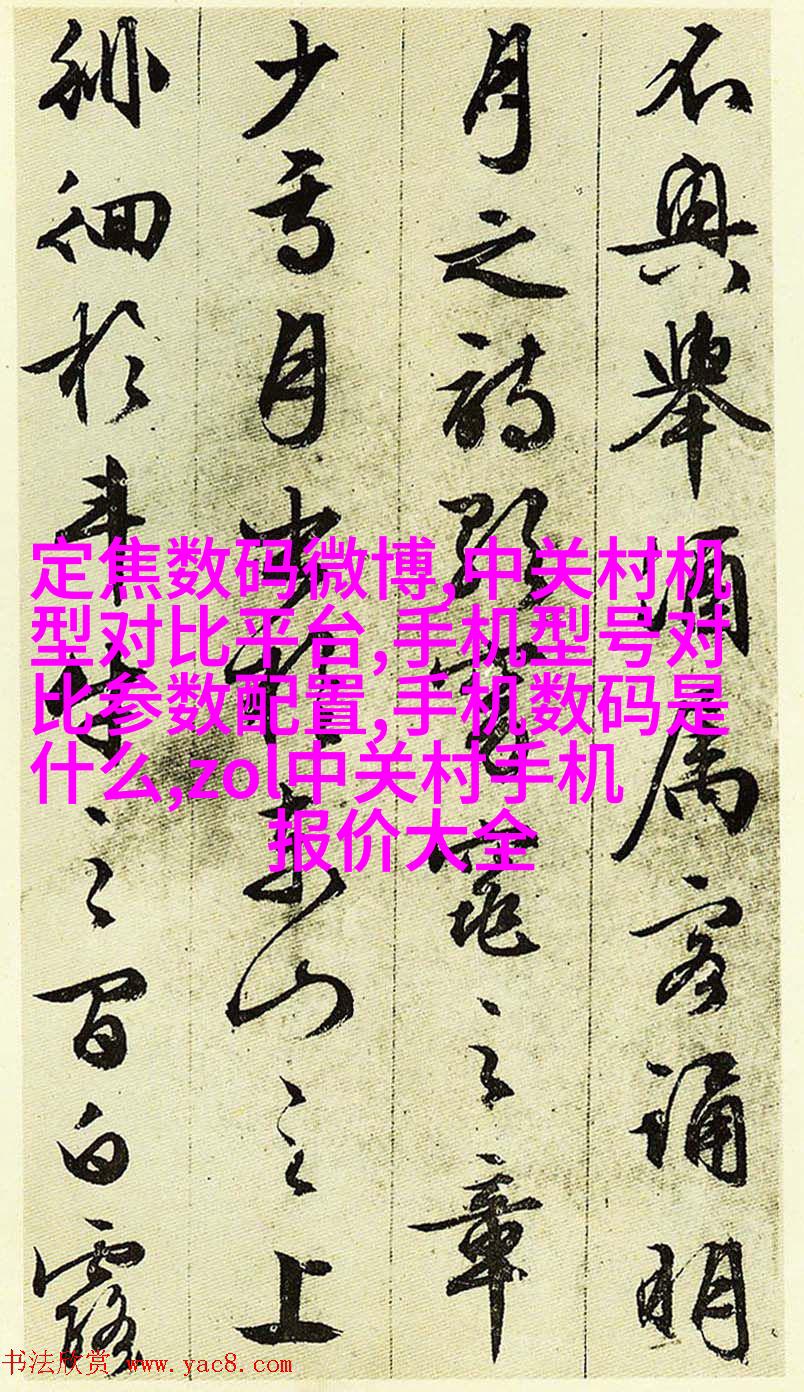 不興舉酒属客誦明
月之詩歌窈窕之章
少焉月出於東山之上
徘徊於斗牛之間白露
定焦数码微博,中关村机
型对比平台,手机型号对
比参数配置,手机数码是
什么,zol中关村手机
报价大全
书法欣赏 www.yac8.com